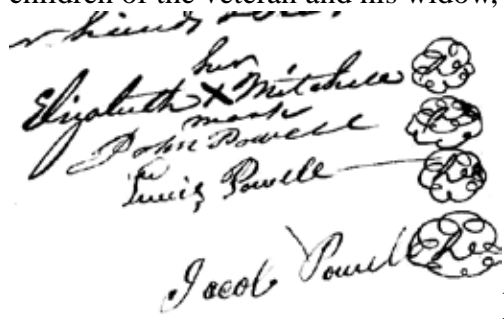 children of the veteran and his widow,
her
Elizabeth X Mitchell
mark
John Powell
Lewis Powell
Jacob Powell